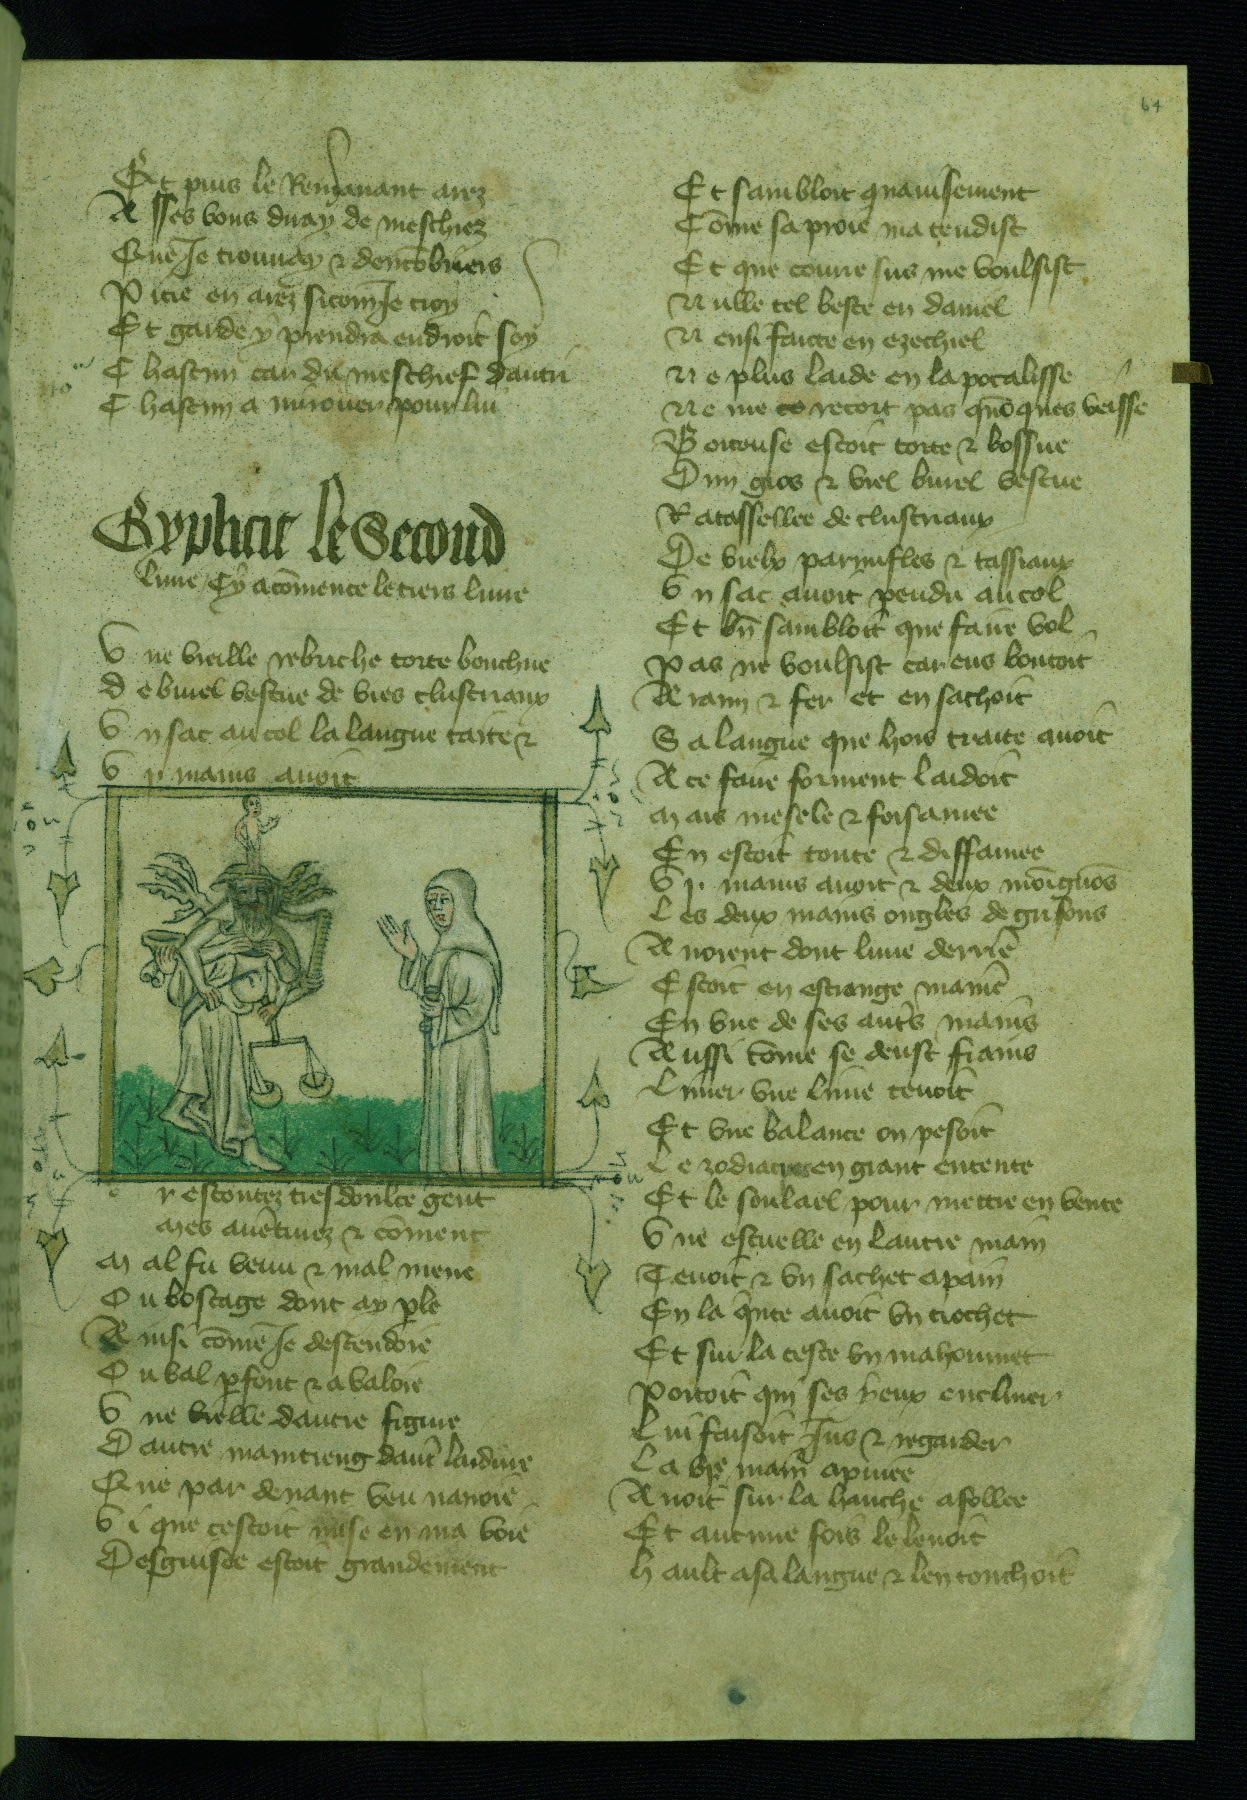 64
Et puis le Remanant arez
Asses vous diray de meschiez
Que Je trouvay & dencōbriers
Pitie en arez sicom Je croy
Et garde y prendra endroit soy
Chascun car du meschief dautri
Chascun a mirouer pour lui
Explicit le Second
livre Cy acōmence le tiers livre
Une vieille rebriche torte bouchue
de burel vestue de vies clustriaux
Un sac au col la langue traite &
vi mains avoit
r escoutez tres doulce gent
mes avētures & cōment
Mal fu venu & mal mene
Ou boscage dont ay ple
Ainsi cōme Je descendoie
Ou val pfont & avaloie
Une vielle dautre figure
Dautre maintieng dautˀ laidure
Que par devant veu navoie
Vi que cestoit mise en ma voie
Desguisee estoit grandement
Et sambloit quavisement
Cōme sa proie ma tendist
Et que courre sus me voulsist
Nulle tel beste en daniel
Nensi faicte en ezechiel
Ne plus laide en lapocalisse
Ne me recort pas quōques veisse
Boiteuse estoit torte & bossue
Dun gros & viel burel vestue
Ratassellee de clustriaux
De vielx & tassiaux
Un sac avoit pendu au col
Et bn̄ sambloit que faire vol
Pas ne voulsist car ens boutoit
Arain & fer et en sachoit
Sa langue que hors traite avoit
A ce faire forment laidoit
Mais mesele & forsamee
En estoit toute & diffamee
Vi mains avoit & deux moignōs
Les deux mains ongles de grifons
Avoient dont lune derriē
Estoit en estrange maniē
En une de ses autˀs mains
Aussi cōme se deust frains
Limer une lime tenoit
Et une balance ou pesoit
Le zodiac en grant entente
Et le soulael pour mettre en vente
Une escuelle en lautre main
Tenoit & un sachet a pain
En la qˀnte avoit un crochet
Et sur la teste un mahommet
Portoit qui ses yeux encliner
Lui faisoit Jus & regarder
La vie main apuiee
Avoit sur la hanche afollee
Et aucune fois le levoit
hault a sa langue & len touchoit